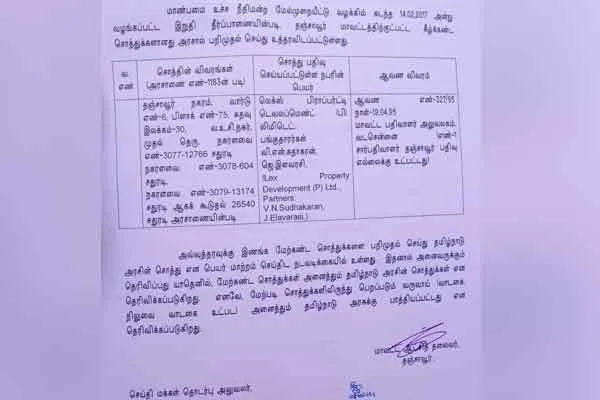 மாண்பமை உச்ச நீதிமன்ற மேல்முறையீட்டு வழக்கில் கடந்த 14.02.2017 அன்று
வழங்கப்பட்ட இறுதி தீர்ப்பாணையின்படி, தஞ்சாவூர் மாவட்டத்திற்குட்பட்ட கீழ்க்கண்ட
சொத்துக்களானது அரசால் பறிமுதல் செய்து உத்தரவிடப்பட்டுள்ளது.
வ. எண்
சொத்தின் விவரங்கள்
(அரசாணை எண்-1183ன் படி)
சொத்து பதிவு
செய்யப்பட்டுள்ள நபரின்
பெயர்
ஆவண விவரம்
தஞ்சாவூர் நகரம், வார்டு
எண்-6, பிளாக் எண்-75, கதவு
இலக்கம்-30, வ.உ.சி.நகர்,
முதல் தெரு, நகரளவை
எண்-3077-12766 சதுரடி
நகரளவை எண்.3078-604
சதுரடி,
நகரளவை எண்-3079-13174
சதுரடி ஆகக் கூடுதல் 26540
சதுரடி அரசாணையின்படி
லெக்ஸ் பிராப்பர்ட்டி
டெவலப்மெண்ட் (பி)
லிமிடெட்,
பங்குதாரர்கள்
வி.என்.சுதாகரன்,
ஜெ.இளவரசி,
(Lex Property
Development (P) Ltd.,
Partners:
V.N.Sudhakaran,
J.Elavarasi,)
ஆவண எண்-327/95
நாள்-19.04.95
மாவட்ட பதிவாளர் அலுவலகம்,
வடசென்னை (எண்-1
சார்பதிவாளர் தஞ்சாவூர் பதிவு
எல்லைக்கு உட்பட்டது)
அவ்வுத்தரவுக்கு இணங்க மேற்கண்ட சொத்துக்களை பறிமுதல் செய்து தமிழ்நாடு
அரசின் சொத்து என பெயர் மாற்றம் செய்திட நடவடிக்கையில் உள்ளது. இதனால் அனைவருக்கும்
தெரிவிப்பது யாதெனில், மேற்கண்ட சொத்துக்கள் அனைத்தும் தமிழ்நாடு அரசின் சொத்துக்கள் என
தெரிவிக்கப்படுகிறது. எனவே, மேற்படி சொத்துக்களிலிருந்து பெறப்படும் வருவாய் (வாடகை,
நிலுவை வாடகை உட்பட) அனைத்தும் தமிழ்நாடு அரசுக்கு பாத்தியப்பட்டது என
தெரிவிக்கப்படுகிறது.
மாவட்ட ஆட்சித் தலைவர்,
தஞ்சாவூர்.
செய்தி மக்கள் தொடர்பு அலுவலர்,